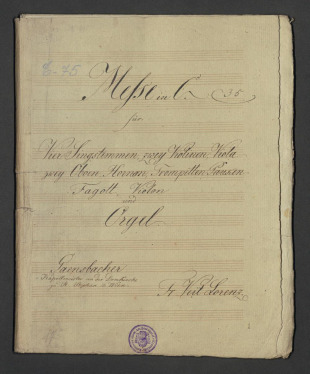 Messe in C. 35
für
Vier Singstimmen, zwey Violinen, Viola
zwey Oboen, Hornan, Trompetten, Pauken
Fagott Violon
und
Orgel
Gaensbacher
Kapellmeister an der Domkirche
zu St. Stephan in Wien
Fr. Veit Lorenz